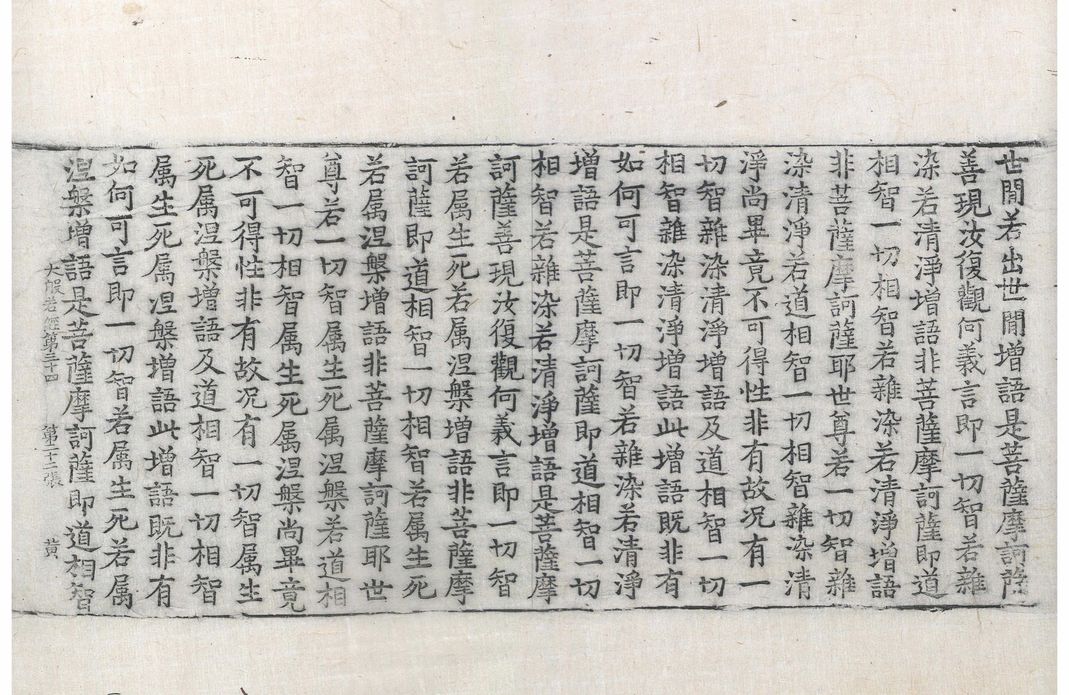 世閒若出世閒增語是菩薩摩訶薩
善現汝復觀何義言即一切智若雜
染若清淨增語非菩薩摩訶薩即道
相智一切相智若雜染若清淨增語
非菩薩摩訶薩耶世尊若一切智雜
染清淨若道相智一切相智雜染清
淨尚畢竟不可得性非有故况有一
切智雜染清淨增語及道相智一切
相智雜染清淨增語此增語既非有
如何可言即一切智若雜染若清淨
增語是菩薩摩訶薩即道相智一切
相智若雜染若清淨增語是菩薩摩
訶薩善現汝復觀何義言即一切智
若属生死若属涅槃增語非菩薩摩
訶薩即道相智一切相智若属生死
若属涅槃增語非菩薩摩訶薩耶世
尊若一切智属生死属涅槃若道相
智一切相智属生死属涅槃尚畢竟
不可得性非有故况有一切智属生
死属涅槃增語及道相智一切相智
属生死属涅槃增語此增語既非有
如何可言即一切智若属生死若属
涅槃增語是菩薩摩訶薩即道相智
大般若經第三十四 第二十二張 黄